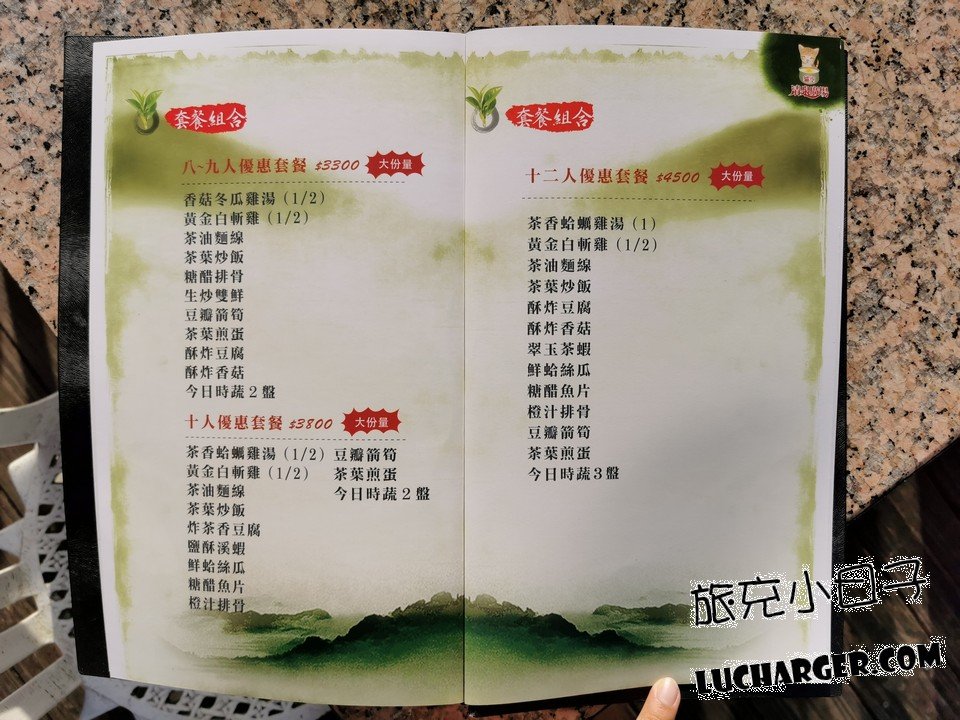 套餐組合
八~九人優惠套餐 $3300 大份量
香菇冬瓜雞湯（1/2）
黃金白斬雞（1/2）
茶油麵線
茶葉炒飯
糖醋排骨
生炒雙鮮
豆瓣箭筍
茶葉煎蛋
酥炸豆腐
酥炸香菇
今日時蔬2盤
十人優惠套餐 $3800 大份量
茶香蛤蠣雞湯（1/2）
黃金白斬雞（1/2）
茶油麵線
茶葉炒飯
炸茶香豆腐
鹽酥溪蝦
鮮蛤絲瓜
糖醋魚片
橙汁排骨
豆瓣箭筍
茶葉煎蛋
今日時蔬2盤
套餐組合
十二人優惠套餐 $4500 大份量
茶香蛤蠣雞湯（1）
黃金白斬雞（1/2）
茶油麵線
茶葉炒飯
酥炸豆腐
酥炸香菇
翠玉茶蝦
鮮蛤絲瓜
糖醋魚片
橙汁排骨
豆瓣箭筍
茶葉煎蛋
今日時蔬3盤
旅充小日子
LUCHARGER.COM